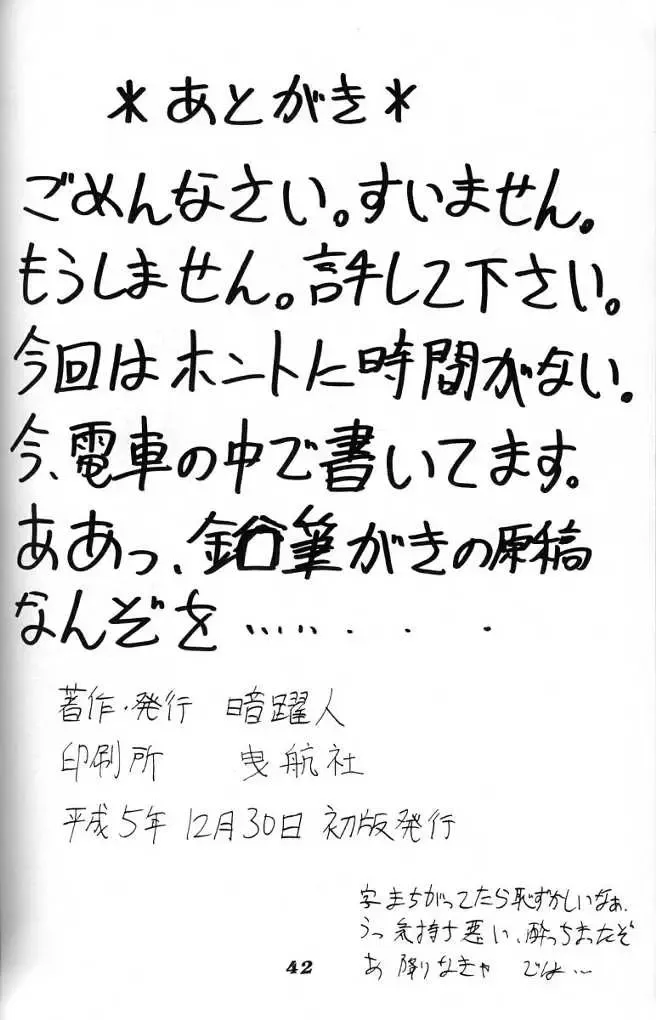 *あとがき*
ごめんなさい。すいません。
もうしません。許して下さい。
今回はホントに時間がない。
今、電車の中で書いてます。
ああっ、鉛筆がきの原稿
なんぞを……...
著作・発行 暗躍人
印刷所 曳航社
平成5年12月30日 初版発行
字まちがってたら恥ずかしいなぁ、
うっ気持ち悪い、酔っちまったぞ
あ降りなきゃ では…
42